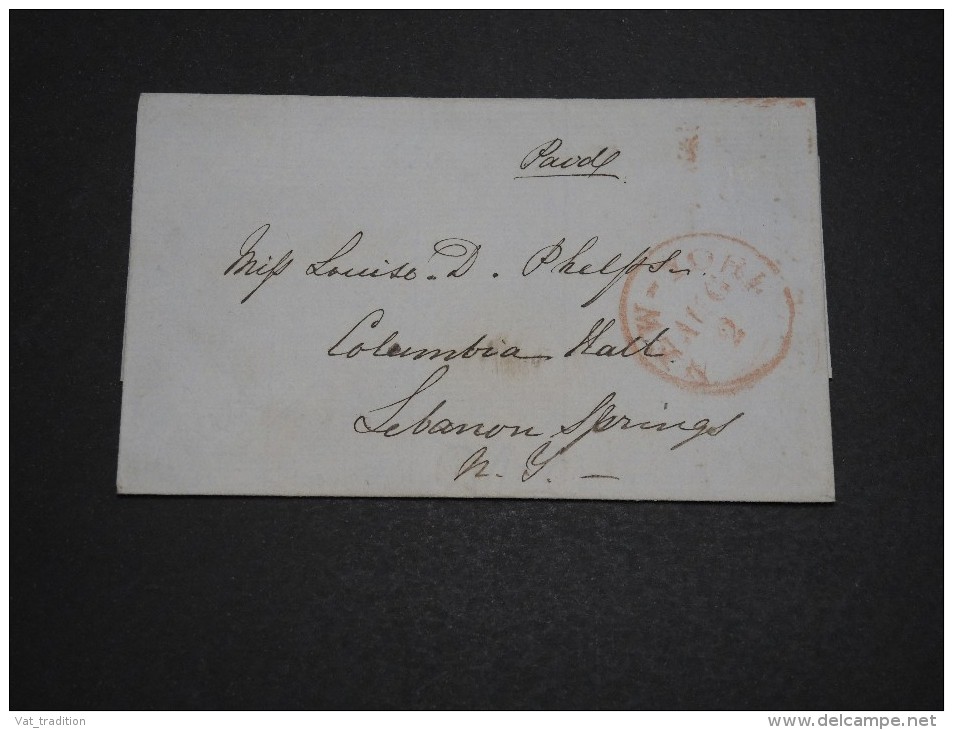 Paid
Miss Louise D. Phelps.
Columbia Hall.
Lebanon Springs
N. Y. —
NEW-YORK
AUG
2
Vat_tradition
delcampe.net